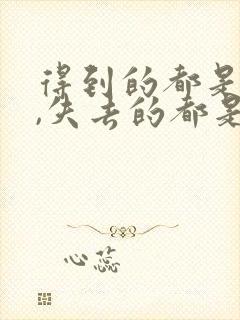 得到的都是
,失去的都是
心蕊